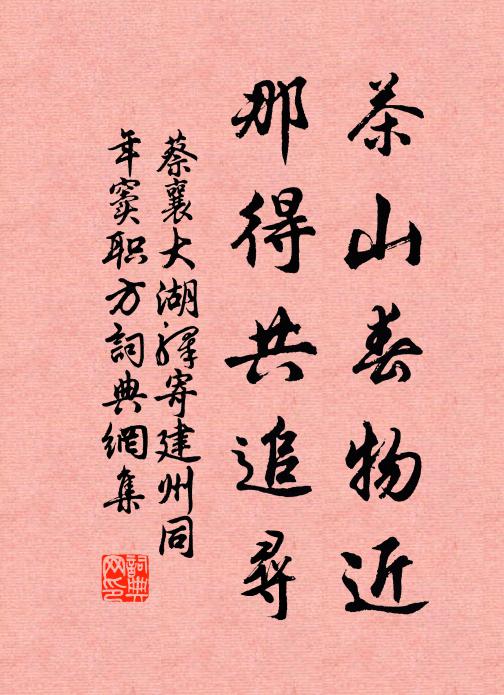 茶山春物近
那得共追尋
蔡襄大湖驛寄建州同
年竇职方詞典網集
詞典
网印